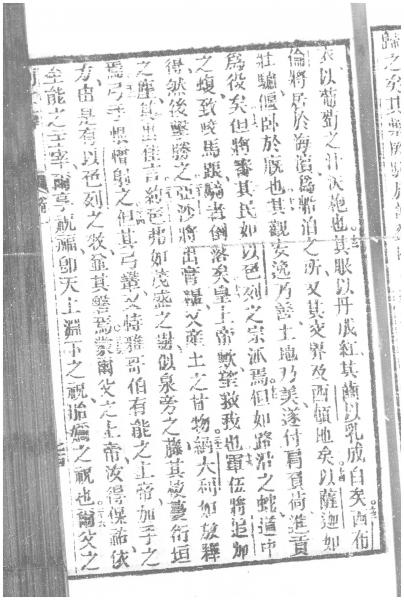 衣以葡萄之汁決袍也其眼以丹成紅其齒以乳成白矣西布
倫將居於海濱爲船泊之所又其交界及西頓地矣以薩迦如
壯驢偃臥於廐也其觀安逸乃善土地乃美遂付肩負荷進貢
爲役矣但將審其民如以色列之宗派焉但如路沿之蛇道中
之蝮致咬馬踵騎者倒落矣皇上帝歟望救我也軍伍將追加
得然後擊勝之亞沙將出膏糧又產土之甘物納大利如放釋
之麀其畀佳言約色弗如茂盛之樹似泉旁之藤其枝蔓衍垣
焉弓手恨憎射之但其弓鞏又恃雅哥伯有能之主帝加手之
力由是有以色列之牧並其磐焉蒙爾父之上帝汝得保祐依
全能之主宰爾享祝福卽天上淵下之祝胎之祝也爾父之